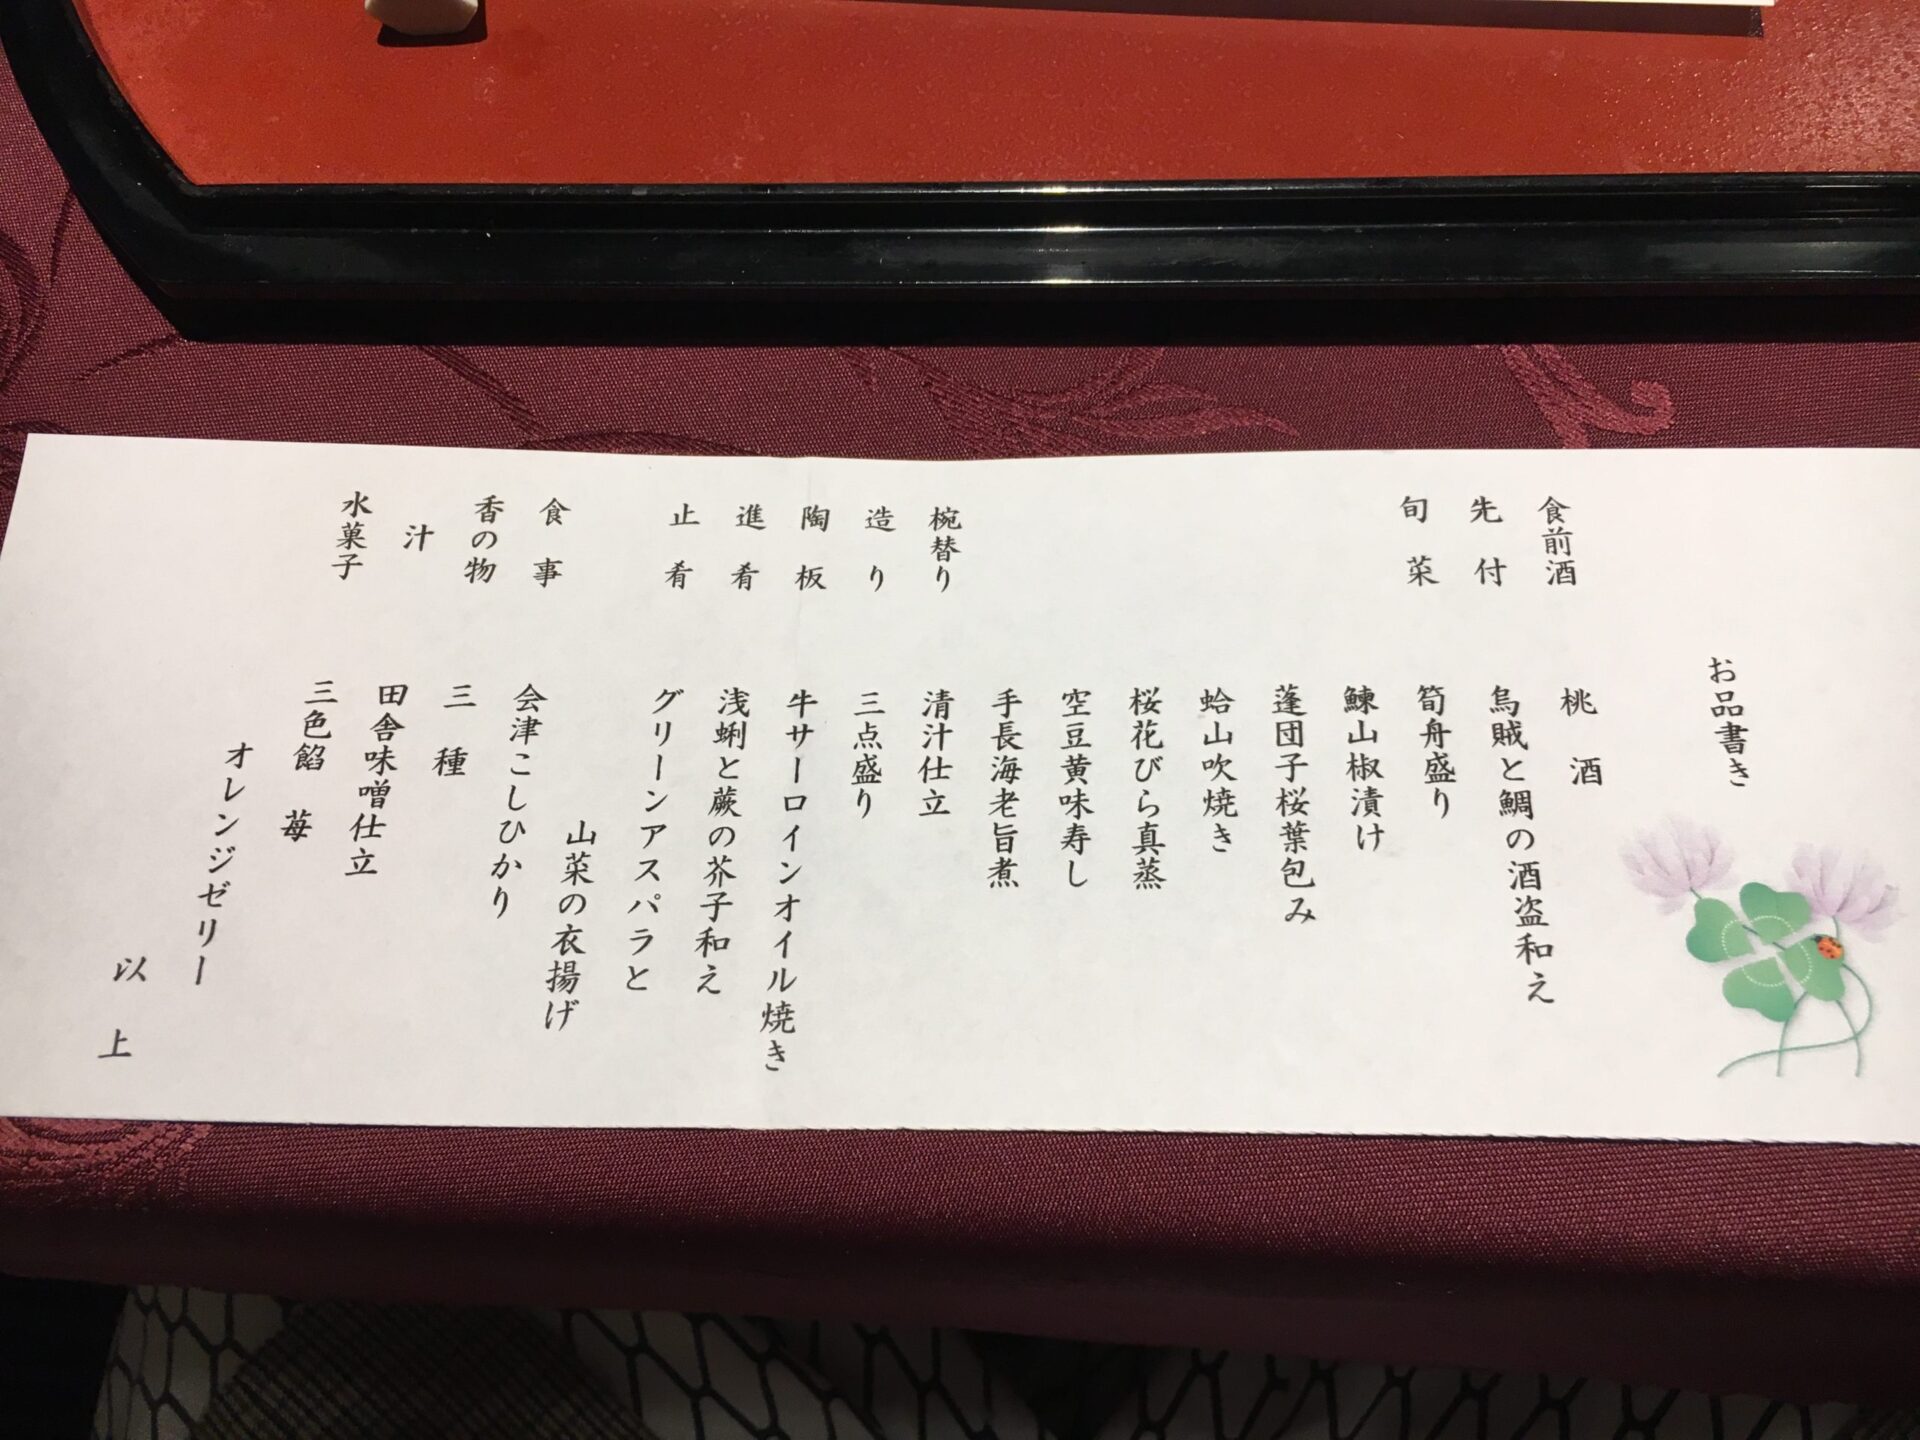 お品書き
食前酒 桃酒
先付 烏賊と鯛の酒盗和え
旬菜 筍舟盛り
鰊山椒漬け
蓬団子桜葉包み
蛤山吹焼き
桜花びら真蒸
空豆黄味寿し
手長海老旨煮
椀替り 清汁仕立
造り 三点盛り
陶板 牛サーロインオイル焼き
進肴 浅蜊と蕨の芥子和え
止肴 グリーンアスパラと
山菜の衣揚げ
食事 会津こしひかり
香の物 三種
汁 田舎味噌仕立
水菓子 三色餡苺
オレンジゼリー
以上